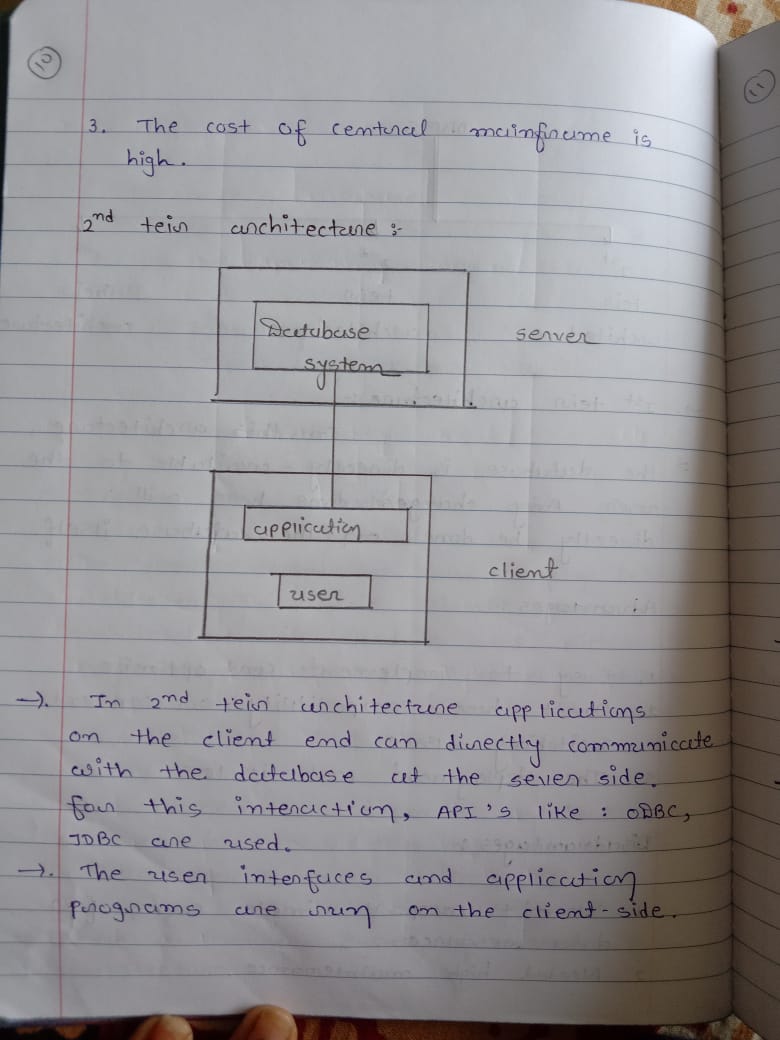 10
11
3. The cost of central mainframe is
high.
2nd teir architecture :-
Database
system
server
application
client
user
→. In 2nd teir architecture applications
on the client end can directly communicate
with the database at the sever side.
for this interaction, API's like : ODBC,
JDBC are used.
→. The user interfaces and application
programs are run on the client-side.